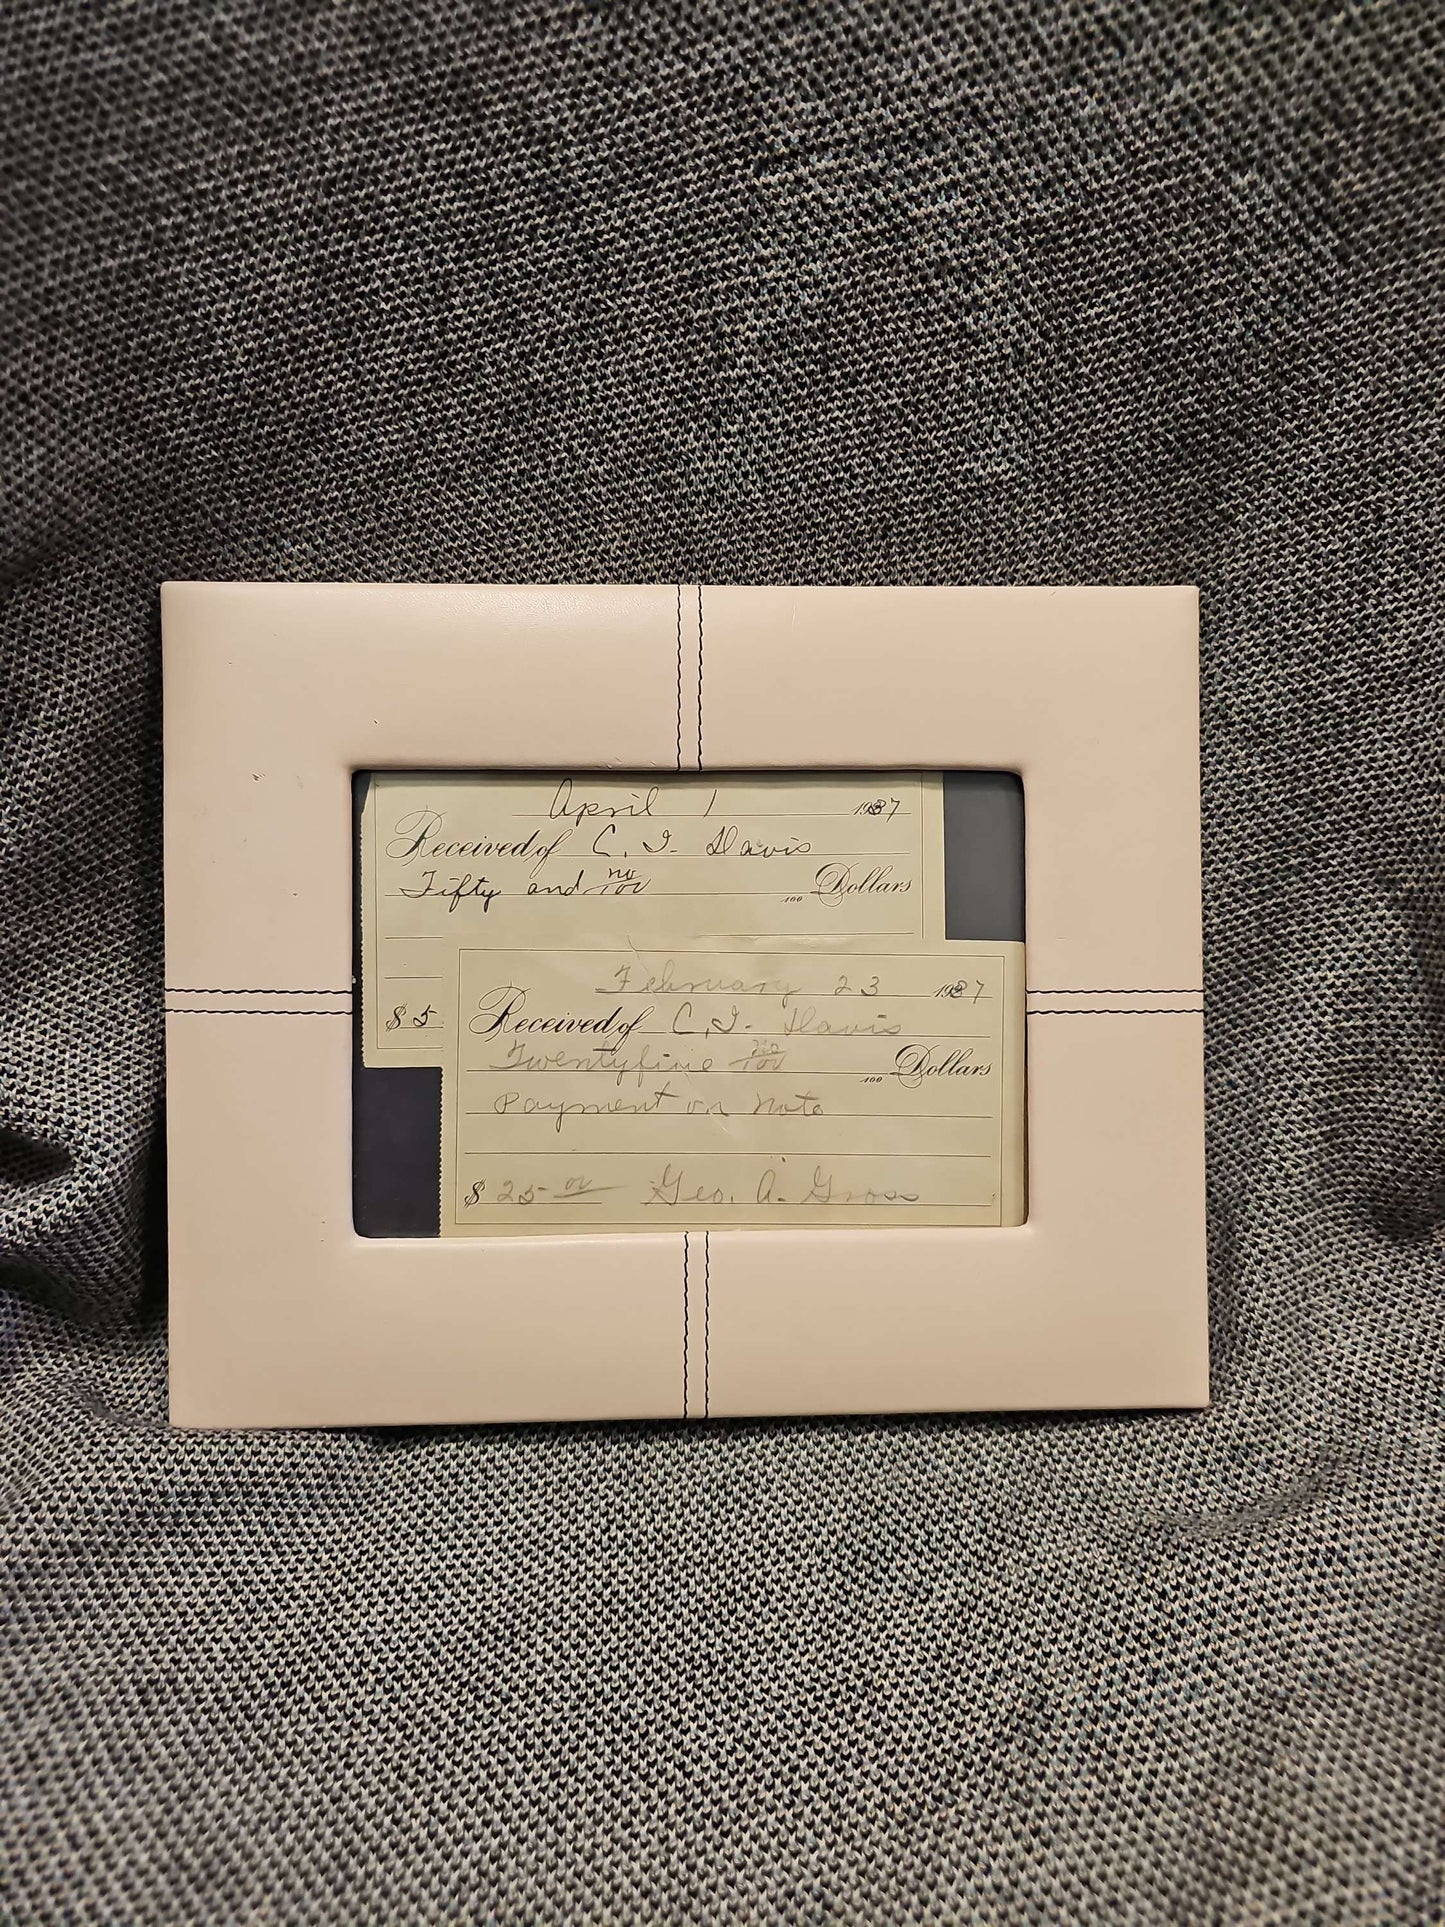 April 1 1937
Received of C. I. Davis
Fifty and no/100 /100 Dollars
$ 5
February 23 1937
Received of C. I. Davis
Twentyfive no/100 /100 Dollars
Payment on Note
$ 25 00 Geo. A. Gross